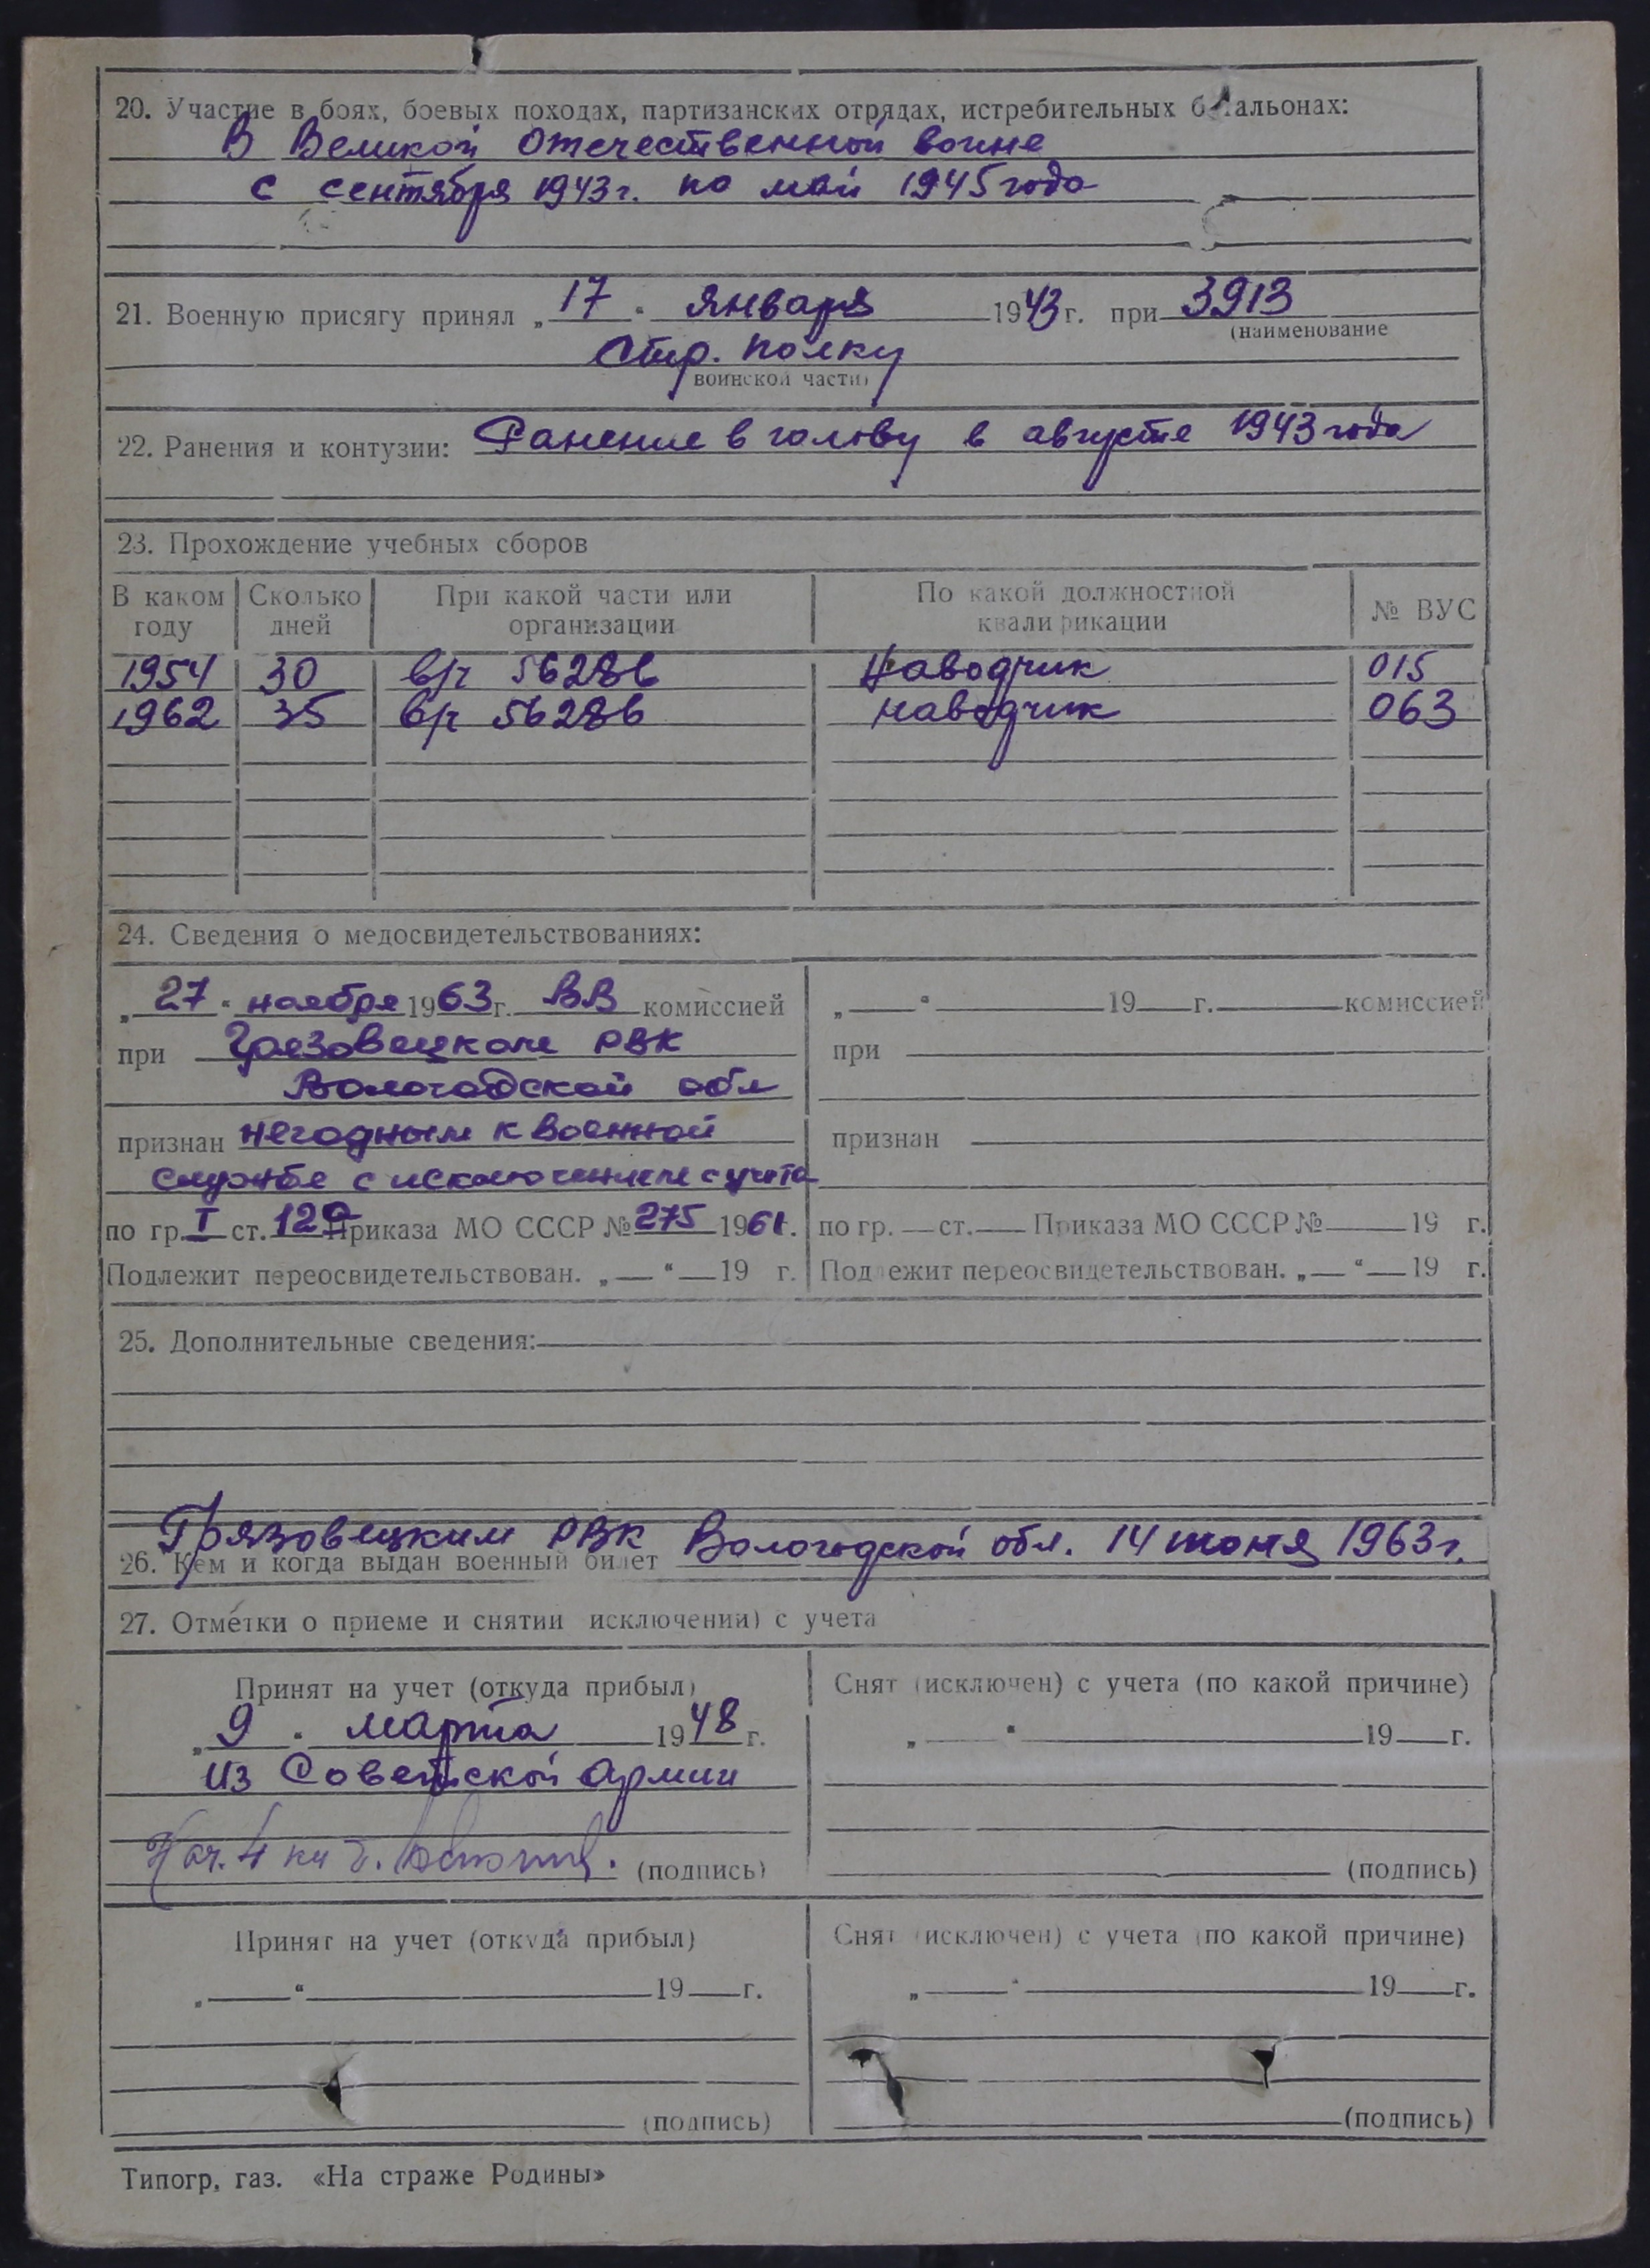 20. Участие в боях, боевых походах, партизанских отрядах, истребительных батальонах:
В Великой Отечественной войне
с сентября 1943 г. по май 1945 года
21. Военную присягу принял „17“ января 1943 г. при 3913
(наименование
Стр. полку
воинской части)
22. Ранения и контузии: Ранение в голову в августе 1943 года
23. Прохождение учебных сборов
В каком году Сколько дней При какой части или организации По какой должностной квалификации № ВУС
1954 30 в/ч 56286 Наводчик 015
1962 35 в/ч 56286 наводчик 063
24. Сведения о медосвидетельствованиях:
„27“ ноября 1963 г. ВВ комиссией
при Грязовецком РВК
Вологодской обл
признан негодным к военной
службе с исключением с учета
по гр. I ст. 12а Приказа МО СССР № 275 1961 г.
Подлежит переосвидетельствован. „ “ 19 г.
„ “ 19 г. комиссией
при
признан
по гр. ст. Приказа МО СССР № 19 г.
Подлежит переосвидетельствован. „ “ 19 г.
25. Дополнительные сведения:
Грязовецким РВК Вологодской обл. 14 июня 1963 г.
26. Кем и когда выдан военный билет
27. Отметки о приеме и снятии исключении) с учета
Принят на учет (откуда прибыл)
„9“ марта 1948 г.
из Советской Армии
Нач. 4
(подпись)
Снят (исключен) с учета (по какой причине)
„ “ 19 г.
(подпись)
Принят на учет (откуда прибыл)
„ “ 19 г.
(подпись)
Снят (исключен) с учета (по какой причине)
„ “ 19 г.
(подпись)
Типогр, газ. «На страже Родины»